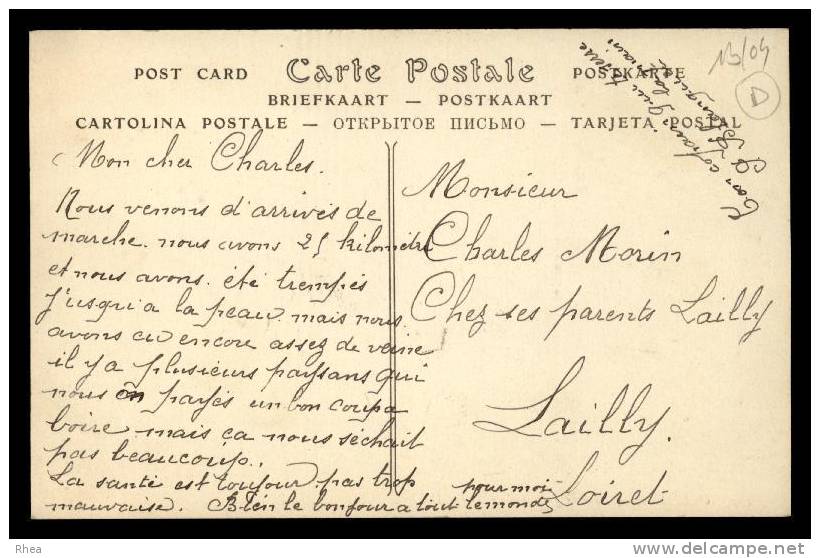 POST CARD
Carte Postale
POSTKARTE
BRIEFKAART — POSTKAART
CARTOLINA POSTALE — ОТКРЫТОЕ ПИСЬМО — TARJETA POSTAL
13/04
D
Mon cher Charles.
Nous venons d'arrivés de
marche. nous avons 25 kilomètre
et nous avons été trempés
J'usqu'a la peau. mais nous
avons eu encore assez de veine
il y a plusieurs paysans qui
nous on payés un bon coup a
boire mais ça nous séchait
pas beaucoup.
La santé est toujour pas trop
mauvaise. Bien le bonjour a tout le monde
pour moi
Monsieur
Charles Morin
Chez ses parents Lailly
Lailly.
Loiret
Ton copain qui te
serre la main